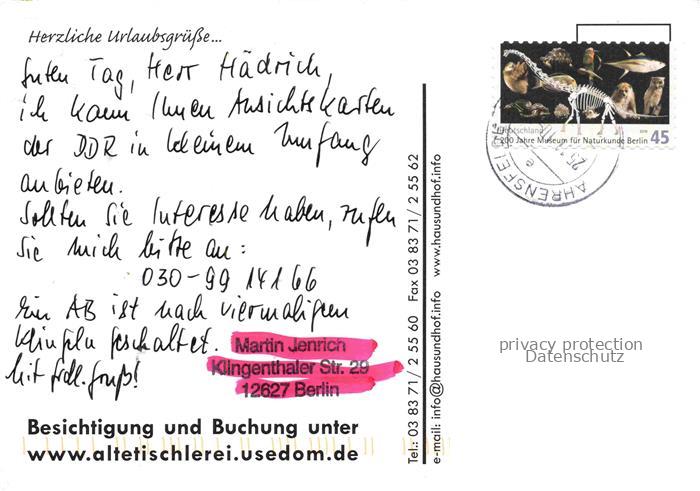 Herzliche Urlaubsgrüße...
Guten Tag, Herr Hädrich,
ich kann Ihnen Ansichtskarten
der DDR in kleinem Umfang
anbieten.
Sollten Sie Interesse haben, rufen
Sie mich bitte an:
030-99 141 66
Ein AB ist nach viermaligem
Klingeln geschaltet.
Mit frdl. Gruß!
Martin Jenrich
Klingenthaler Str. 29
12627 Berlin
Besichtigung und Buchung unter
www.altetischlerei.usedom.de
Tel.: 03 83 71/ 2 55 60 Fax 03 83 71/ 2 55 62
e-mail: info@hausundhof.info www.hausundhof.info
Deutschland
200 Jahre Museum für Naturkunde Berlin 45
AHRENSFELDE
privacy protection
Datenschutz